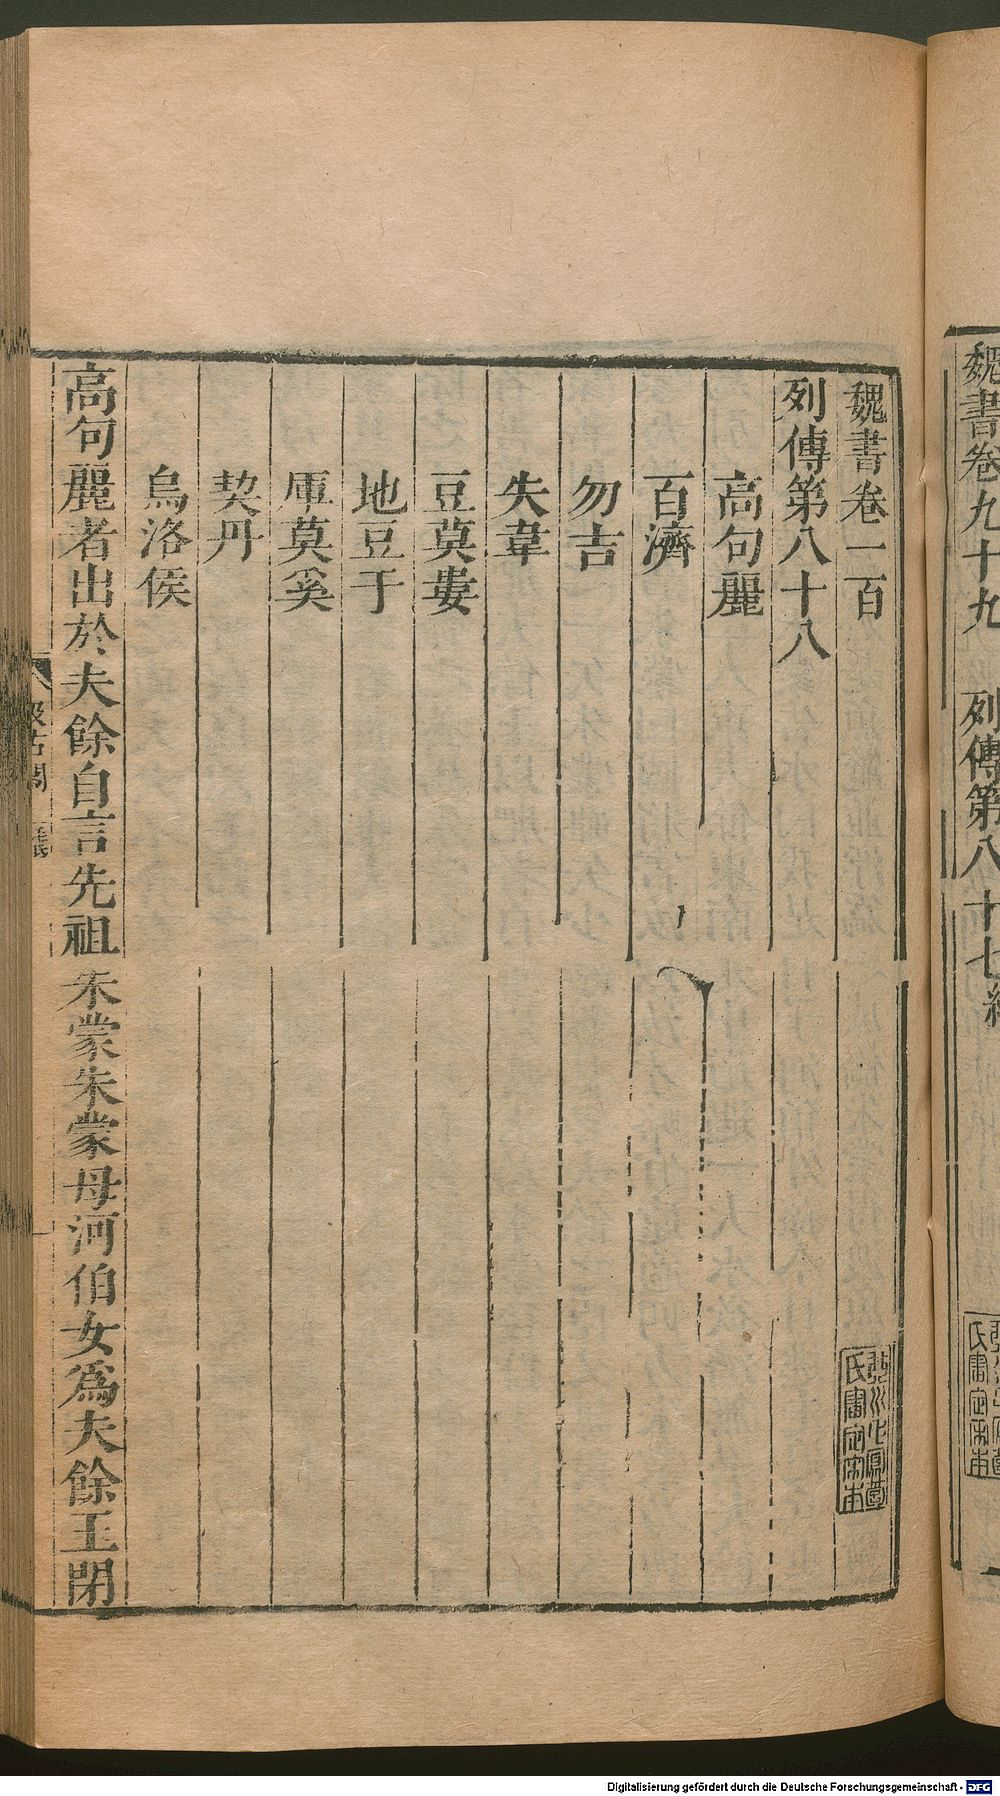 魏書卷九十九 列傳第八十七終
魏書卷一百
列傳第八十八
高句麗
百濟
勿吉
失韋
豆莫婁
地豆于
庫莫奚
契丹
烏洛侯
高句麗者出於夫餘自言先祖朱蒙朱蒙母河伯女爲夫餘王閉
Digitalisierung gefördert durch die Deutsche Forschungsgemeinschaft - DFG